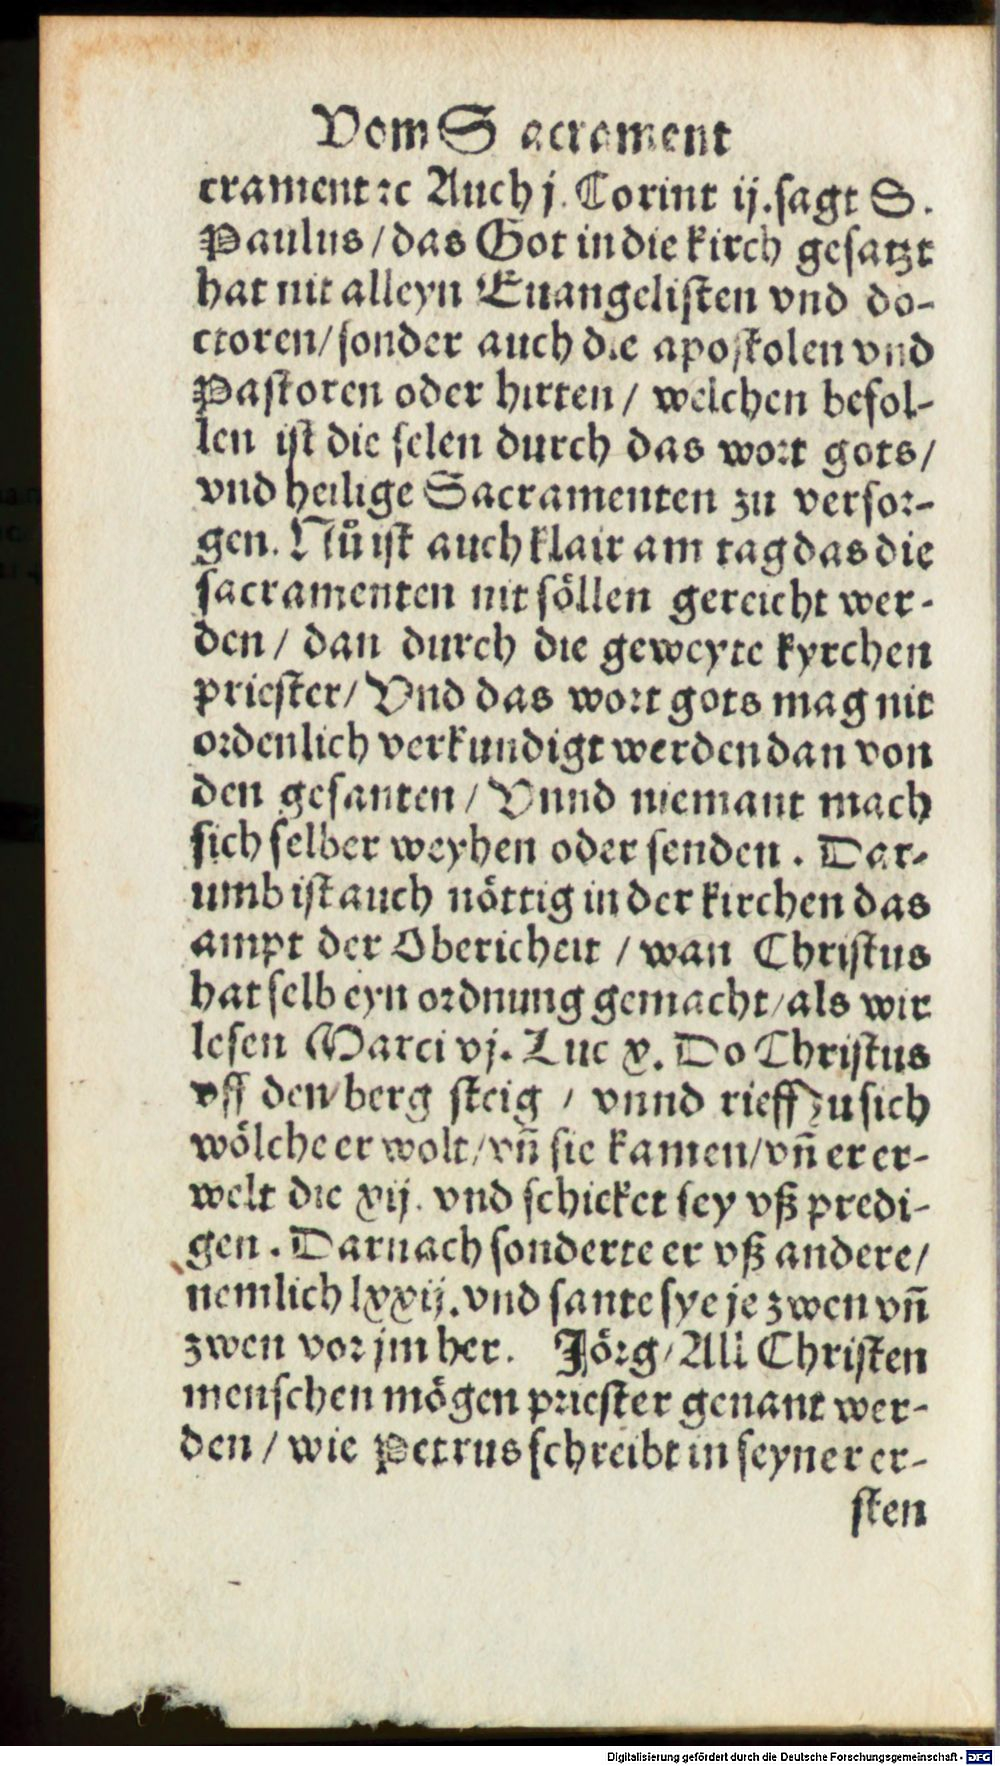 Vom S acrament
crament ꝛc Auch j. Corint ij. sagt S.
Paulus / das Got in die kirch gesatzt
hat nit alleyn Euangelisten vnd do-
ctoren / sonder auch die apostolen vnd
Pastoren oder hirten / welchen befol-
len ist die selen durch das wort gots /
vnd heilige Sacramenten zu versor-
gen. Nů ist auch klair am tag das die
sacramenten nit söllen gereicht wer-
den / dan durch die geweyte kyrchen
priester / Vnd das wort gots mag nit
ordenlich verkundigt werden dan von
den gesanten / Vnnd niemant mach
sich selber weyhen oder senden. Dar-
umb ist auch nöttig in der kirchen das
ampt der Obericheit / wan Christus
hat selb eyn ordnung gemacht / als wir
lesen Marci vj. Luc x. Do Christus
vff den berg steig / vnnd rieff zu sich
wölche er wolt / vn̄ sie kamen / vn̄ er er-
welt die xij. vnd schicket sey vß predi-
gen. Darnach sonderte er vß andere /
nemlich lxxij. vnd sante sye je zwen vn̄
zwen vor jm her. Jörg / All Christen
menschen mögen priester genant wer-
den / wie Petrus schreibt in seyner er-
sten
Digitalisierung gefördert durch die Deutsche Forschungsgemeinschaft - DFG